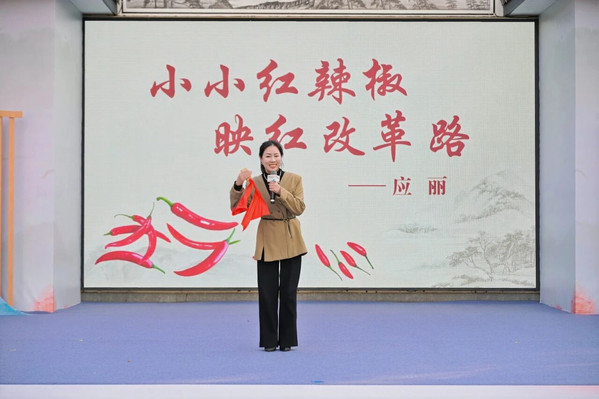 小小红辣椒
映红改革路
——应丽